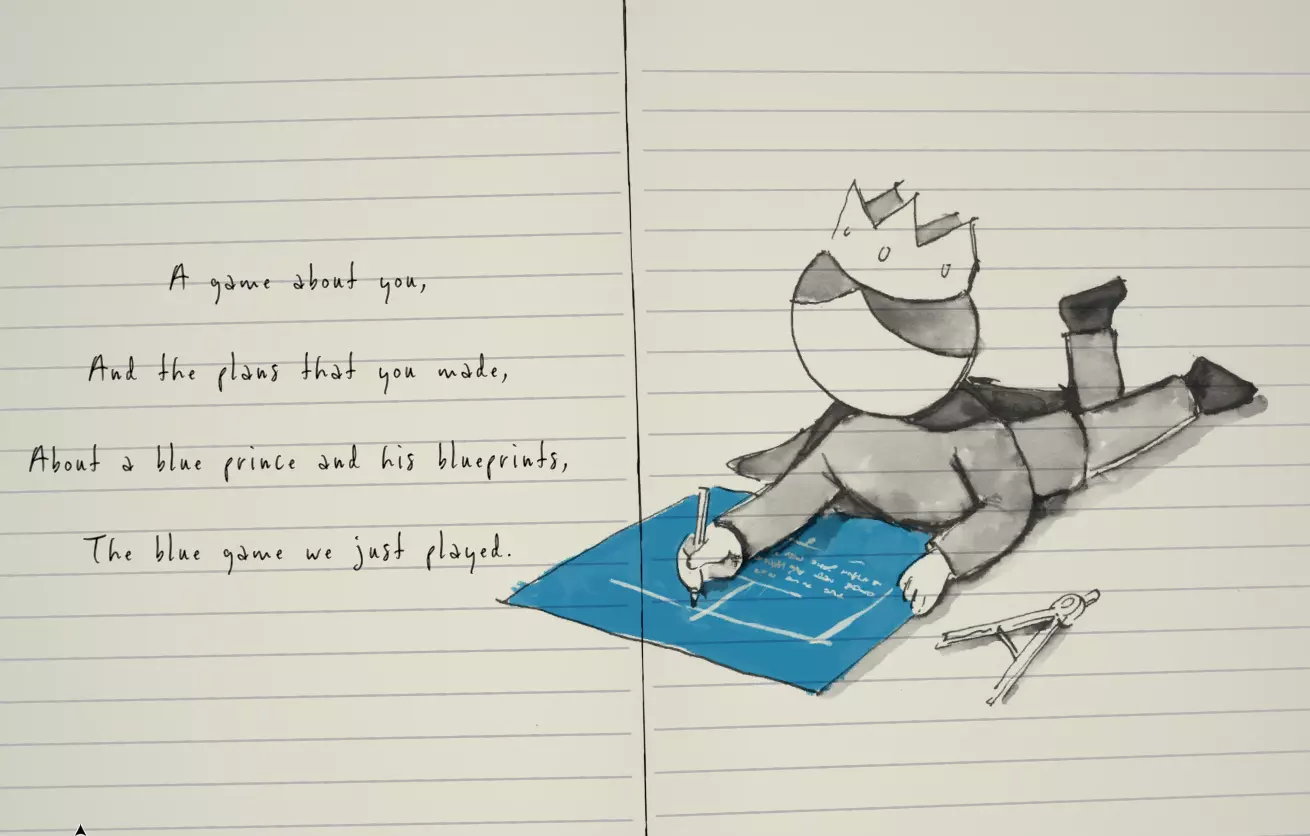 A game about you,
And the plans that you made,
About a blue prince and his blueprints,
The blue game we just played.